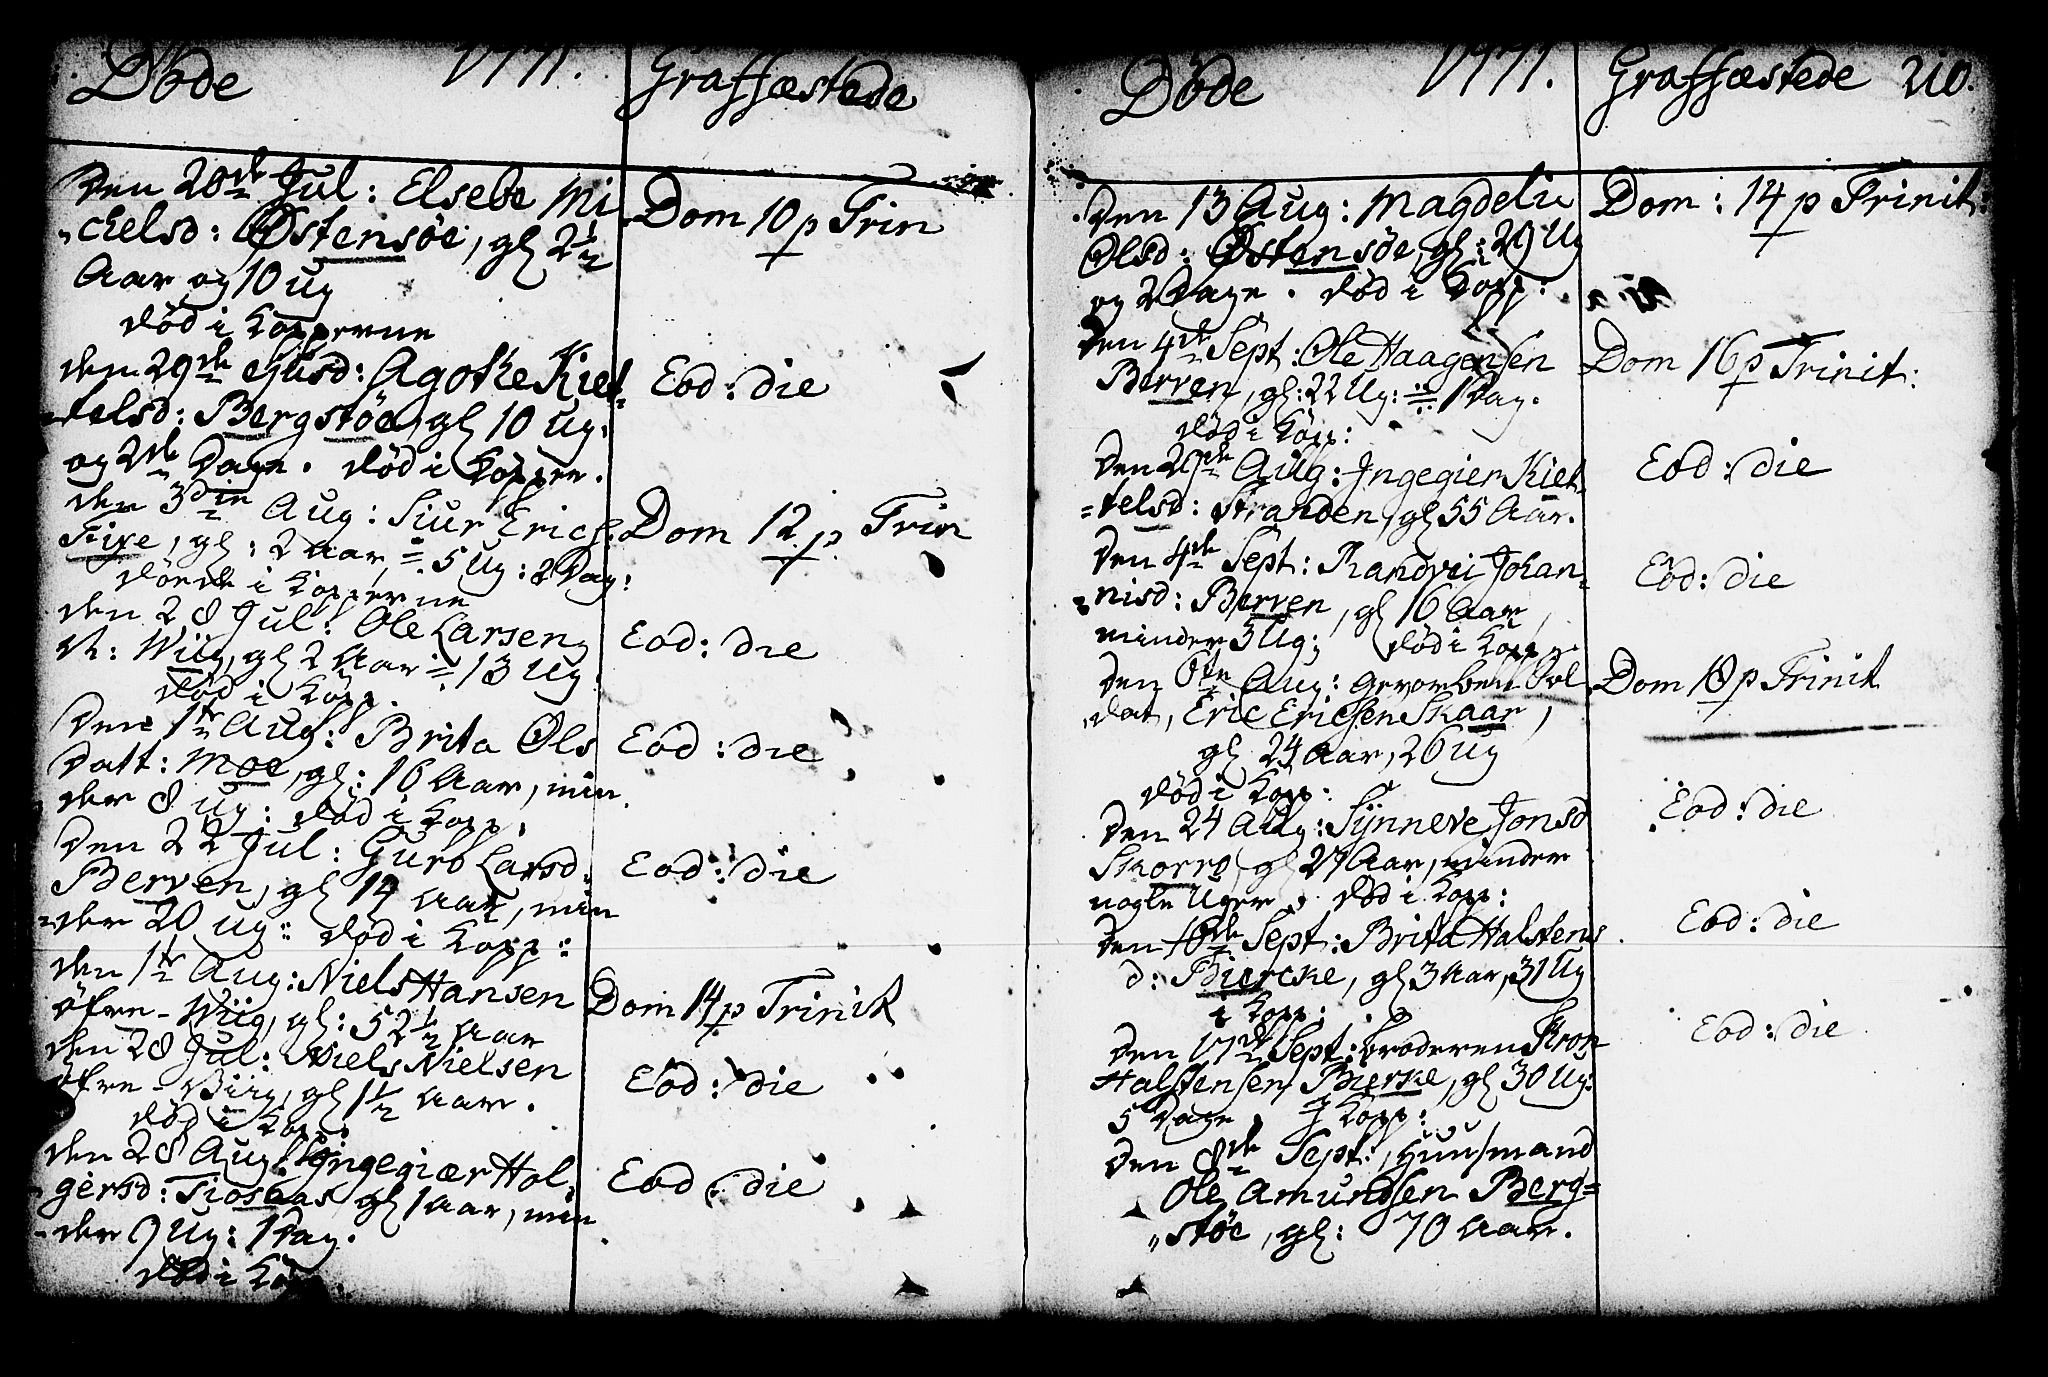 Døde 1771. Graffæstede
Den 20de Jul: Elsebe Mi
chelsd: Østensøe, gl 2½
Aar og 10 Ug
død i Kopperne
Dom 10 p Trin
den 29de Ejusd: Agothe Kiet
telsd: Bergstøe, gl 10 Ug:
og 2de Dage. død i Koppe.
Eod: die
den 3die Aug: Siur Erichs.
Fixe, gl: 2 Aar, 5 Ug: 2 Dag:
døde i Kopperne
Dom 12 p Trin
den 28 Jul: Ole Larsen
N: Wiig, gl 2 Aar 13 Ug
død i Kopp.
Eod: die
Den 1te Aug: Brita Ols
Datt: Moe, gl: 16 Aar, min
der 8 Ug: død i Kopp:
Eod: die
Den 22 Jul: Guro Larsd:
Berven, gl 14 Aar, min
der 20 Ug: død i Kopp:
Eod: die
den 1te Aug: Niels Hansen
øfre-Wiig, gl: 52½ Aar
Dom 14 p Trinit
den 28 Jul: Niels Nielsen
øfre-Viig, gl 1½ Aar.
død i Kopp:
Eod: die
den 28 Aug: Ingegiær Hol
gersd: Tiosaas gl 1 Aar, min
der 9 Ug: 1 Dag.
død i Kopp.
Eod: die
Døde 1771. Graffæstede 210.
Den 13 Aug: Magdeli
Olsd: Østensøe, gl: 29 Ug
og 2 Dage. død i Kopp:
Dom: 14 p Trinit:
Den 4de Sept: Ole Haagensen
Berven, gl: 22 Ug: 1 Dag.
død i Kopp:
Dom 16 p Trinit:
Den 29de Aug: Ingegier Kiet
telsd: Stranden, gl 55 Aar.
Eod: die
Den 4de Sept: Randvei Johan
nisd: Berven, gl 16 Aar
minder 3 Ug; død i Kopp:
Eod: die
Den 6te Aug: Gevorben Sol
dat, Eric Ericsen Skaar,
gl 24 Aar, 26 Ug
død i Kopp:
Dom 18 p Trinit
Den 24 Aug: Synneve Jonsd
Skorro, gl 27 Aar, minder
nogle Uger. død i Kopp:
Eod: die
Den 16de Sept: Brita Halstens
d: Biercke, gl 3 Aar, 31 Ug
i Kopp:
Eod: die
Den 17de Sept: broderen
Halstensen Bierke, gl 30 Ug:
5 Dage J Kopp:
Eod: die
Den 8de Sept:, Huusmand
Ole Amundsen Berg
støe, gl: 70 Aar.